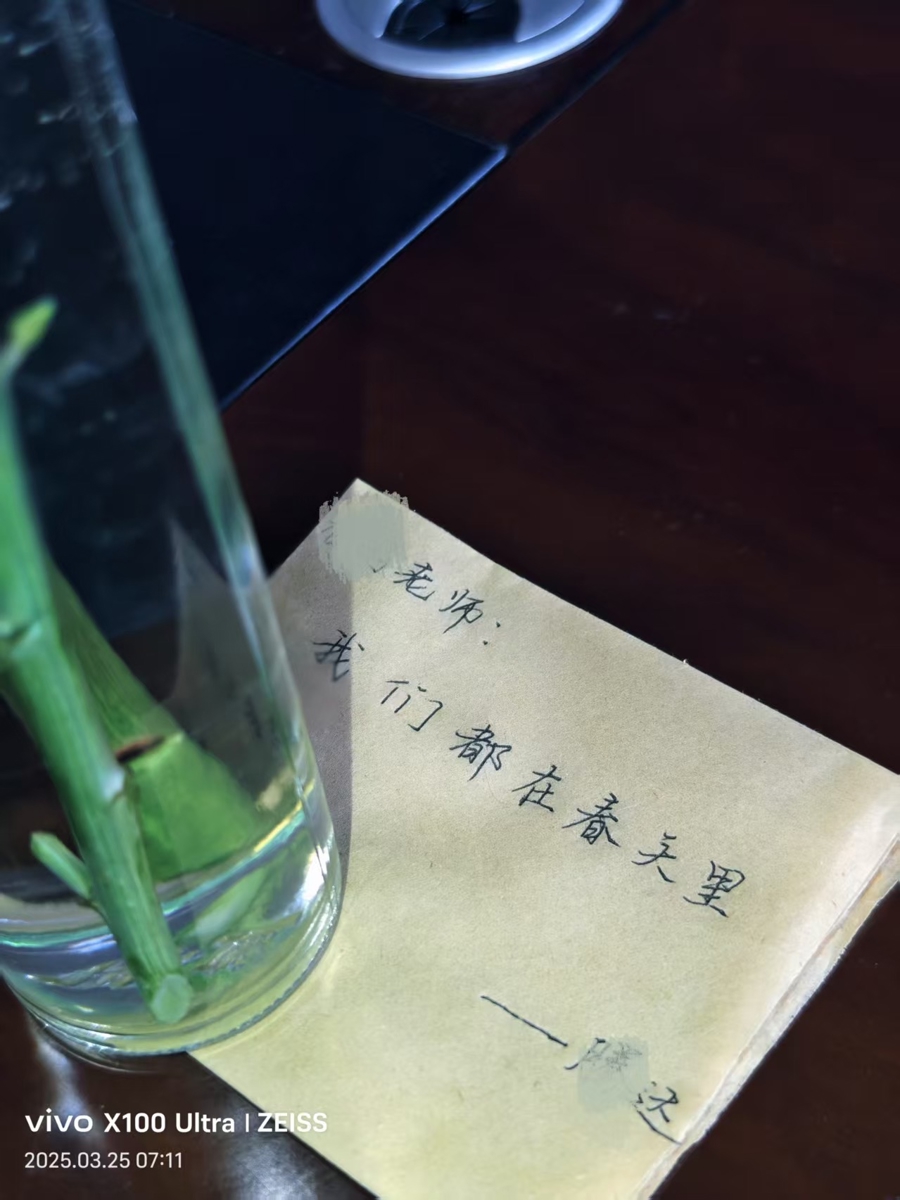 老师：
我们都在春天里
——腾达
vivo X100 Ultra | ZEISS
2025.03.25 07:11